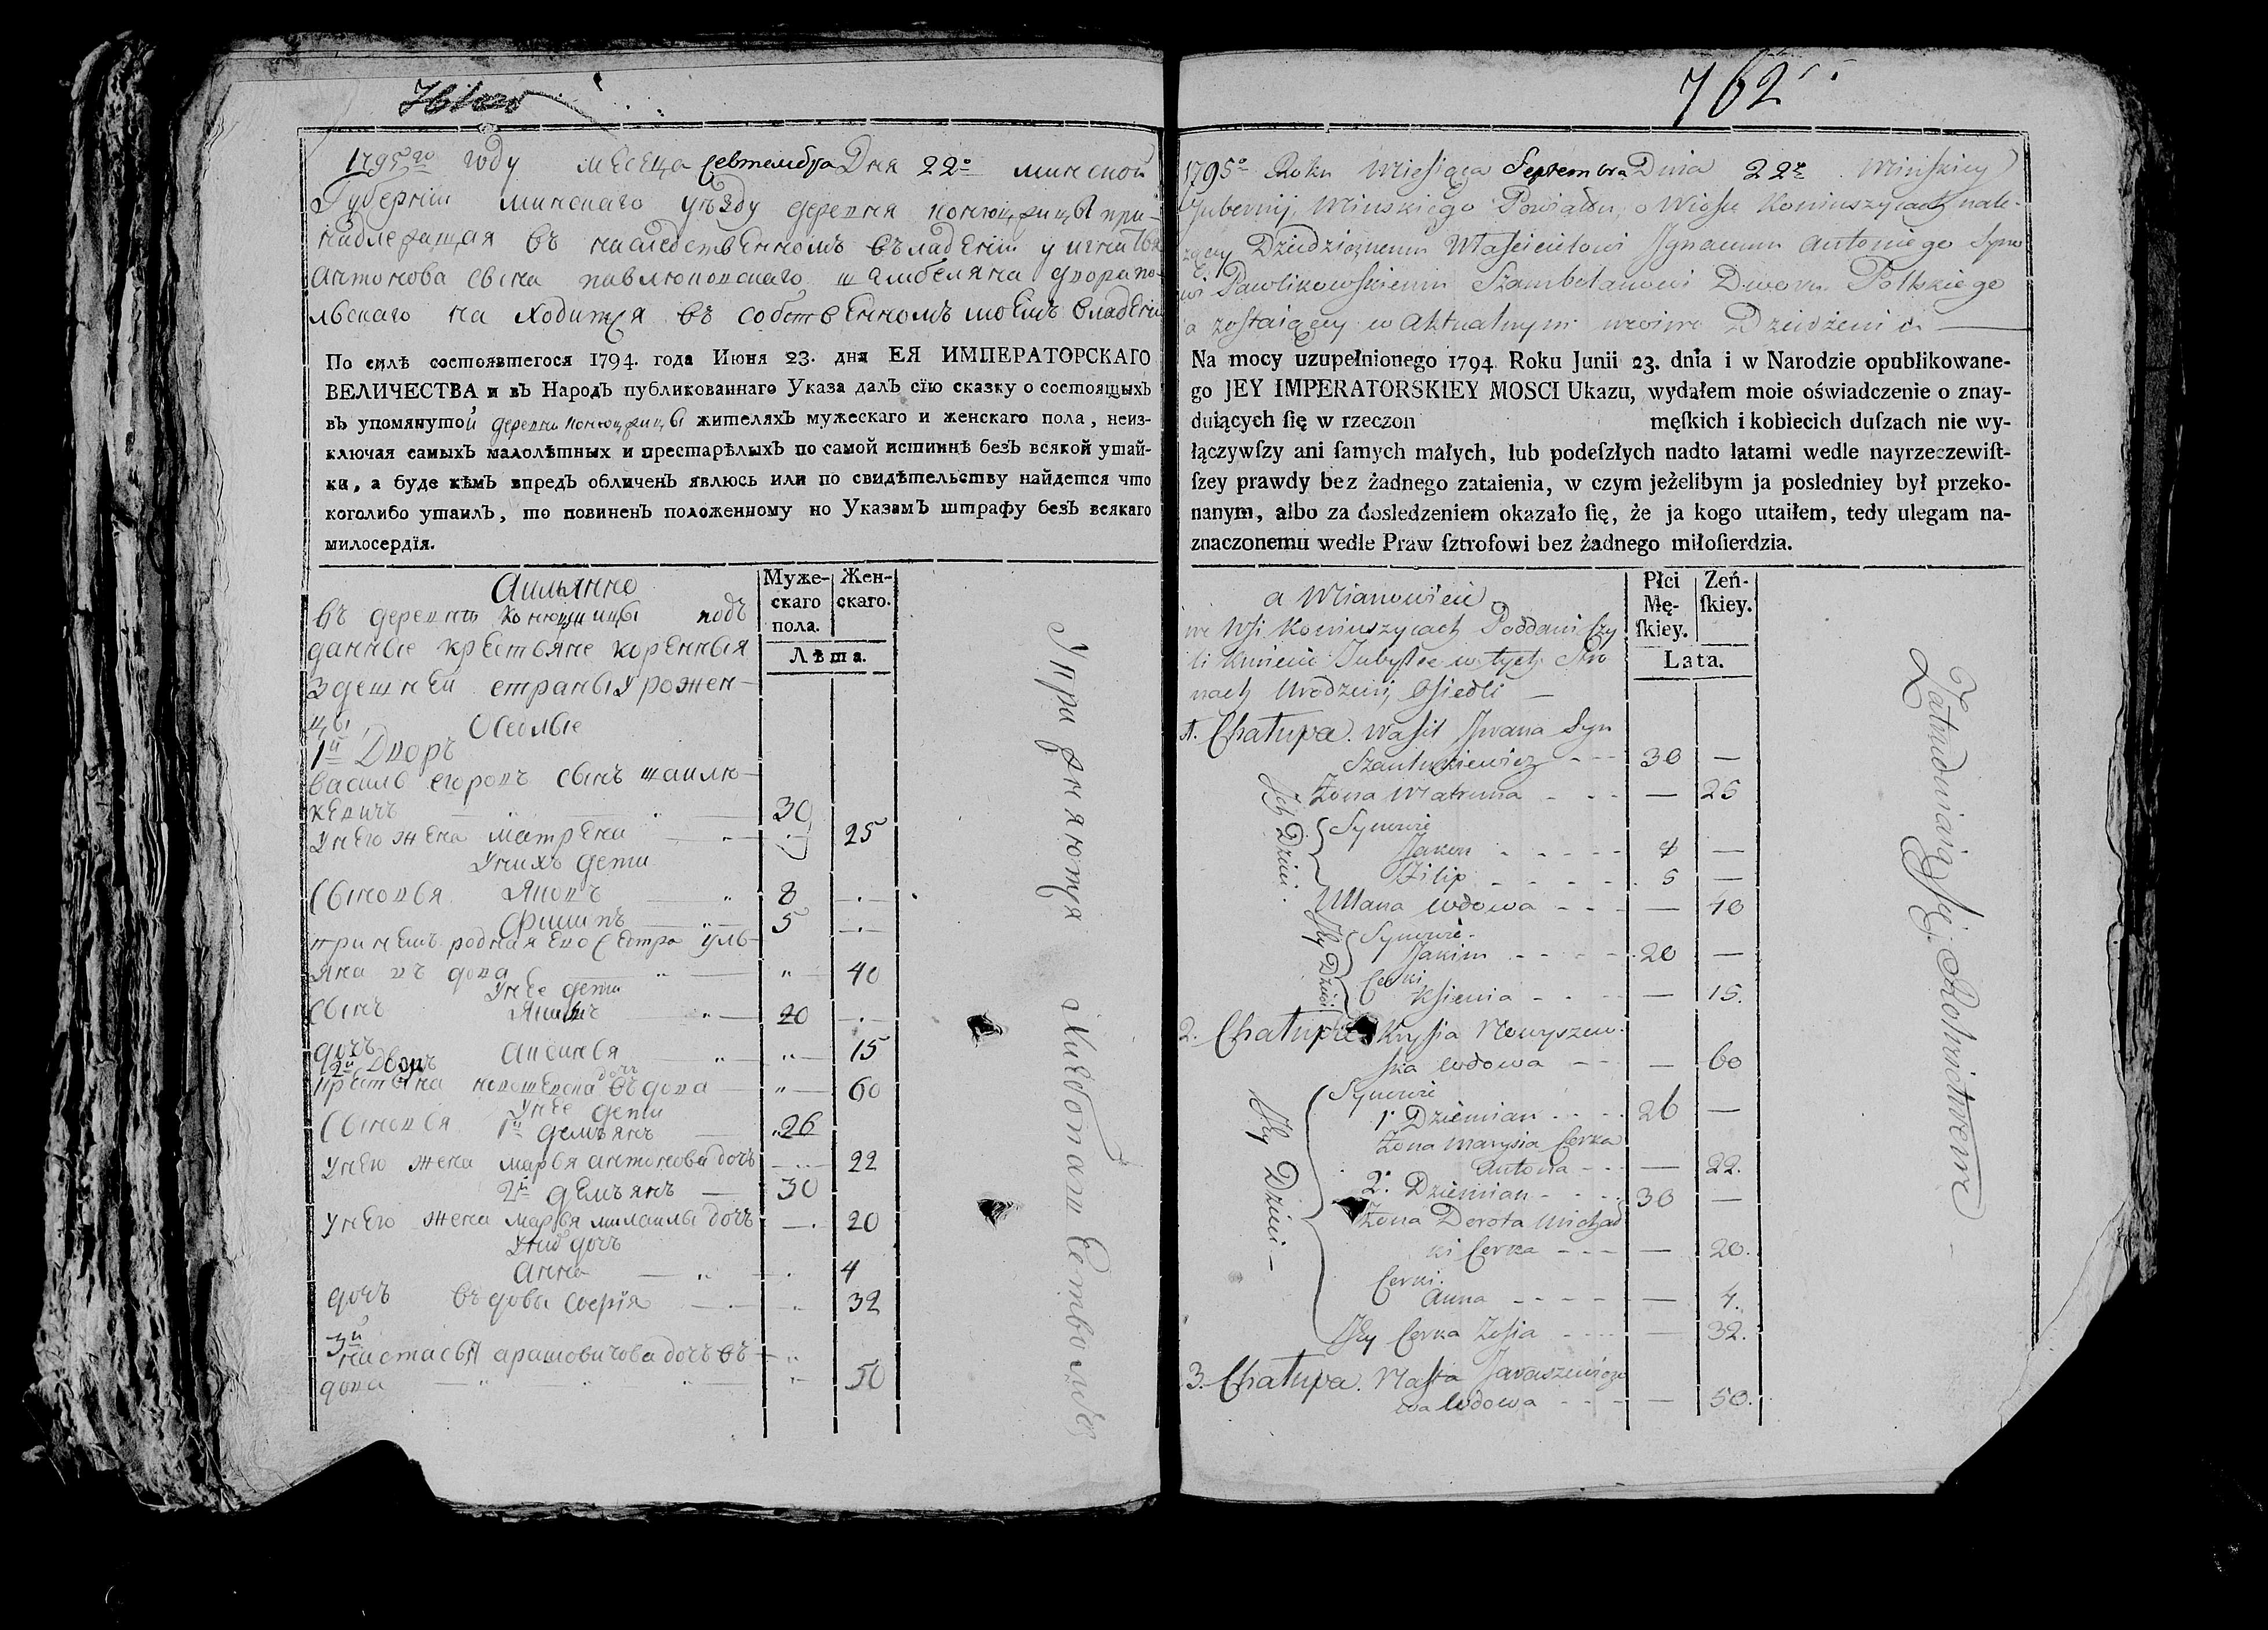 1795го году месеца Севтембра Дня 22о минской
Губернии минскаго уезду деревня
надлежащая въ наследственномъ въладении
антонова сына павлюковскаго шамбеляна двора по-
льскаго на ходится въ собственномъ моемъ владени
По силѣ состоявшегося 1794. года Июня 23. дня ЕЯ ИМПЕРАТОРСКАГО
ВЕЛИЧЕСТВА и въ Народъ публикованнаго Указа далъ сїю сказку о состоящыхъ
въ упомянутой деревни конющицы жителяхъ мужескаго и женскаго пола, неиз-
ключая самыхъ малолѣтныхъ и престарѣлыхъ по самой истиннѣ безъ всякой утай-
ки, а буде кѣмъ впредъ обличенъ явлюсь или по свидѣтельству найдется что
коголибо утаилъ, то повиненъ положенному по Указамъ штрафу безъ всякаго
милосердїя.
Муже-
скаго
пола.
Жен-
скаго.
Лѣта.
Аимянно
въ деревни конющицы подъ
данные крестьяне коренныя
здешней страны урожен-
цы, Оселые
1й Дворъ
василь егоровъ сынъ шанлю-
кевичъ 30
у него жена матрена 25
у нихъ дети
Сыновья Яковъ 8
Филипъ 5
при немъ родная его сестра уль-
яна въ дова 40
у нее дети
Сынъ Якимъ 20
дочь аксинья 15
2й Дворъ
дочь въдова 60
у нее дети
Сыновья 1й демьянъ 26
у него жена марья антонова дочь 22
2й демьянъ 30
у него жена марья дочь 20
дочь
анна 4
дочь въдовы софия 32
3й
настасья арашовичова дочь въ
дова 50
762
1795о Roku Miesiąca Septembra Dnia 22o Minskiey
Gubernij, Minskiego Powiatu, o Wiosce Koniuszycach nale-
żącey Dziedzicznemu Właścicielowi Ignacemu Antoniego Syno
wi Pawlikowskiemu Szambelanowi Dworu Polskiego
a zostaiącey w Aktualnym moim Dziedzeniu
Na mocy uzupełnionego 1794. Roku Junii 23. dnia i w Narodzie opublikowane-
go JEY IMPERATORSKIEY MOSCI Ukazu, wydałem moie oświadczenie o znay-
duiących ſię w rzeczon męſkich i kobiecich duſzach nie wy-
łączywſzy ani ſamych małych, lub podeſzłych nadto latami wedle nayrzeczewiſt-
ſzey prawdy bez żadnego zataienia, w czym jeżelibym ja posledniey był przeko-
nanym, albo za dosledzeniem okazało ſię, że ja kogo utaiłem, tedy ulegam na-
znaczonemu wedle Praw ſztrofowi bez żadnego miłoſierdzia.
Płci
Mę-
ſkiey.
Zeń-
ſkiey.
Lata.
a Mianowicie
we Wsi Koniuszycach Poddani Czy
li Kmiecie w tych Stro
nach Urodzeni, Osiedli
1. Chałupa. Wasil Iwana Syn
30 —
Żona Matruna — 25
Ich Dzieci
Synowie
Jakow 8 —
Filip 5 —
Ullana wdowa — 40
Jey Dzieci
Synowie
Jakim 20 —
Corki
Ksienia — 15.
2. Chałupa Krysia Nowyszew-
ska wdowa — 60
Jey Dzieci
Synowie
1. Dziemian 26 —
Żona Marysia Corka
Antona — 22.
2. Dziemian 30 —
Żona Dorota Michał
ki Corka — 20.
Corki.
Anna — 4.
Jey Corka Zosia — 32.
3. Chałupa. Nasta Jaraszewiczo
wa wdowa — 50.
Упражняются
Zatrudniaią się Rolnictwem